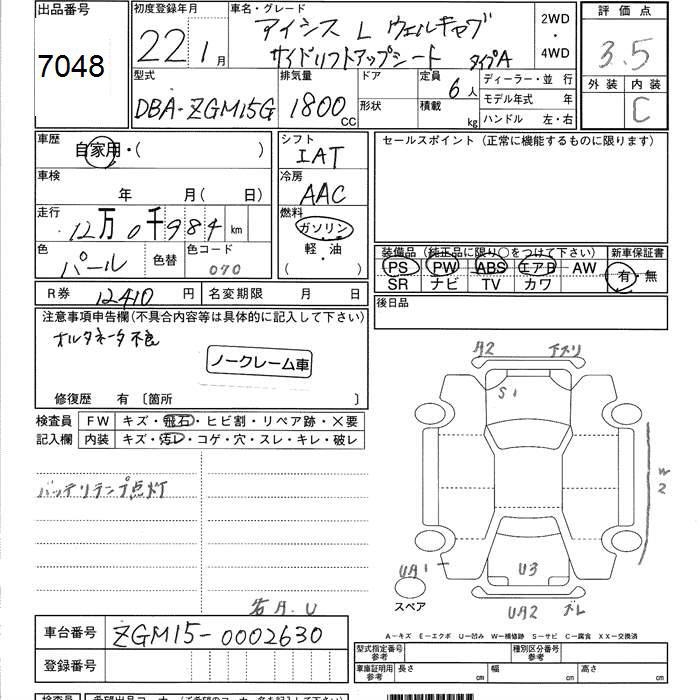 出品番号
7048
初度登録年月
22年 1月
車名・グレード
アイシス L ウェルキャブ
サイドリフトアップシート タイプA
2WD
・
4WD
評価点
3.5
外装 内装
C
型式
DBA-ZGM15G
排気量
1800cc
ドア
形状
定員
6人
積載
kg
ディーラー・並行
モデル年式 年
ハンドル 左・右
車歴
自家用・( )
車検
年 月( 日)
走行
12万0千984km
色
パール
色替
色コード
070
シフト
IAT
冷房
AAC
燃料
ガソリン
・
軽・油
( )
セールスポイント(正常に機能するものに限ります)
装備品(純正品に限り○をつけて下さい)
新車保証書
PS PW ABS エアB AW
SR ナビ TV カワ
有・無
後日品
R券 12410円
名変期限 月 日
注意事項申告欄(不具合内容等は具体的に記入して下さい)
オルタネータ不良
ノークレーム車
修復歴 有〔箇所 〕
検査員
記入欄
FW キズ・飛石・ヒビ割・リペア跡・×要
内装 キズ・汚レ・コゲ・穴・スレ・キレ・破レ
バッテリランプ点灯
A2
S1
W2
U3
UA1
UA2
スペア
A-キズ E-エクボ U-凹み W-補修跡 S-サビ C-腐食 XX-交換済
車台番号
ZGM15-0002630
登録番号
型式指定番号
参考
種別区分番号
参考
車庫証明用
参考
長さ cm
幅 cm
高さ cm